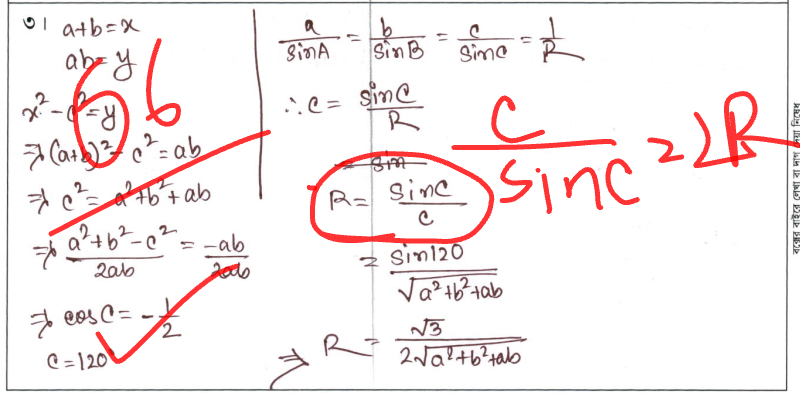 ৩। a+b=x
ab=y
x²-c²=y
⇒(a+b)²-c²=ab
⇒ c²= a²+b²+ab
⇒ a²+b²-c²/2ab = -ab/2ab
⇒ cosC= -1/2
C=120
66
a/sinA = b/sinB = c/sinC = 1/R
∴c= sinC/R
= sin
R= sinC/c
= sin120/√a²+b²+ab
⇒ R= √3/2√a²+b²+ab
c/sinc = 2R
বক্সের বাইরে লেখা বা দাগ দেয়া নিষেধ